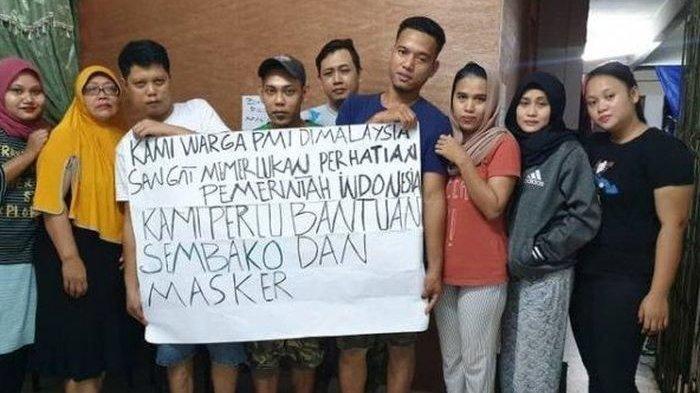 KAMI WARGA PMI DIMALAYSIA
SANGAT MEMERLUKAN PERHATIAN
PEMERINTAH INDONESIA
KAMI PERLU BANTUAN
SEMBAKO DAN
MASKER
adidas